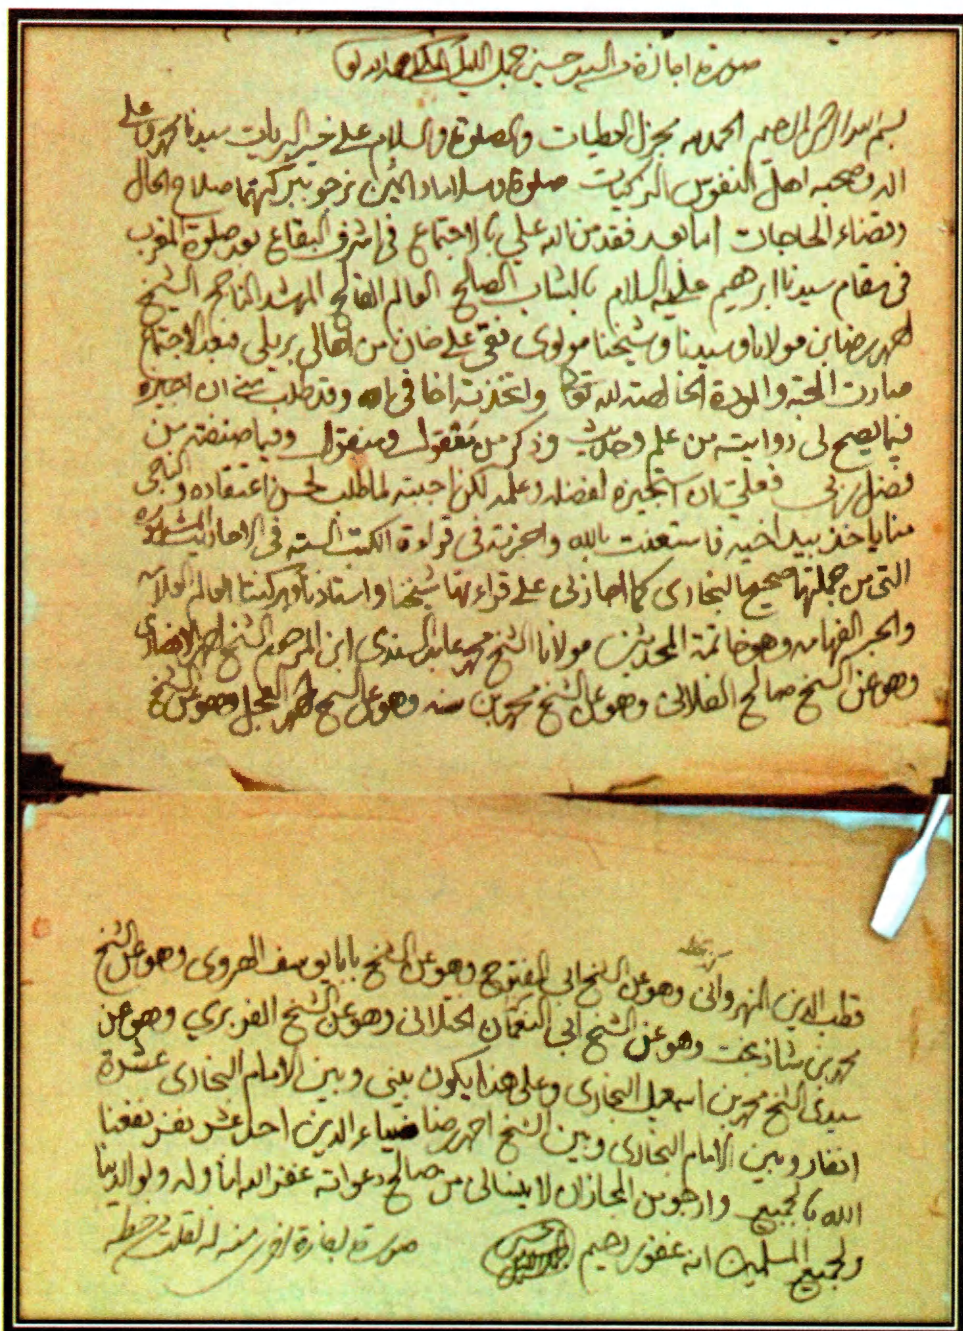 صورة اجازة السيد حسين جمل الليل المكي
بسم الله الرحمن الرحيم الحمد لله مجزل العطيات والصلوة والسلام على خير البريات سيدنا محمد وعلى
اله وصحبه اهل النفوس الزكيات صلوة وسلاما دائمين نرجو ببركتهما صلاح الحال
وقضاء الحاجات اما بعد فقد من الله علي بالاجتماع في اشرف البقاع بعد صلوة المغرب
في مقام سيدنا ابرهيم عليه السلام بالشاب الصالح العالم الفالح المرشد الناجح الشيخ
احمد رضا بن مولانا وسيدنا وشيخنا مولوى نقى على خان من اهالى بريلى فبعد الاجتماع
صارت المحبة والمودة الخالصة لله واتخذته اخا فى الله وقد طلب منى ان اجيزه
فيما يصح لى روايته من علم وحديث وذكر من معقول ومنقول وفيما
فضل ربى لفضله وعلمه لكن اجبته لما طلب لحسن اعتقاده
منا ياخذ بيد اخيه فاستعنت بالله واجزته فى قراءة الكتب السته فى الاحاديث
التى من جملتها صحيح البخارى كما اجازنى على قراءتها شيخنا واستاذنا وبركتنا العالم العلامه
والبحر الفهامه وهو خاتمة المحدثين مولانا الشيخ محمد عابد السندى ابن المرحوم الشيخ احمد الانصارى
وهو عن الشيخ صالح الفلانى وهو عن الشيخ محمد بن سنه وهو عن الشيخ احمد العجل وهو عن الشيخ
قطب الدين النهروانى وهو عن الشيخ ابى الفتوح وهو عن الشيخ بابا يوسف الهروى وهو عن الشيخ
محمد بن شاذ بخت وهو عن الشيخ ابى النعمان الختلانى وهو عن الشيخ الفربري وهو عن
سيدى الشيخ محمد بن اسمعيل البخارى وعلى هذا يكون بينى وبين الامام البخارى عشرة
انفار وبين الامام البخارى وبين الشيخ احمد رضا ضياء الدين احد عشر نفر نفعنا
الله بالجميع وارجو من المجاز ان لا ينسانى من صالح دعواته غفر الله لنا وله ولوالدينا
ولجميع المسلمين انه غفور رحيم